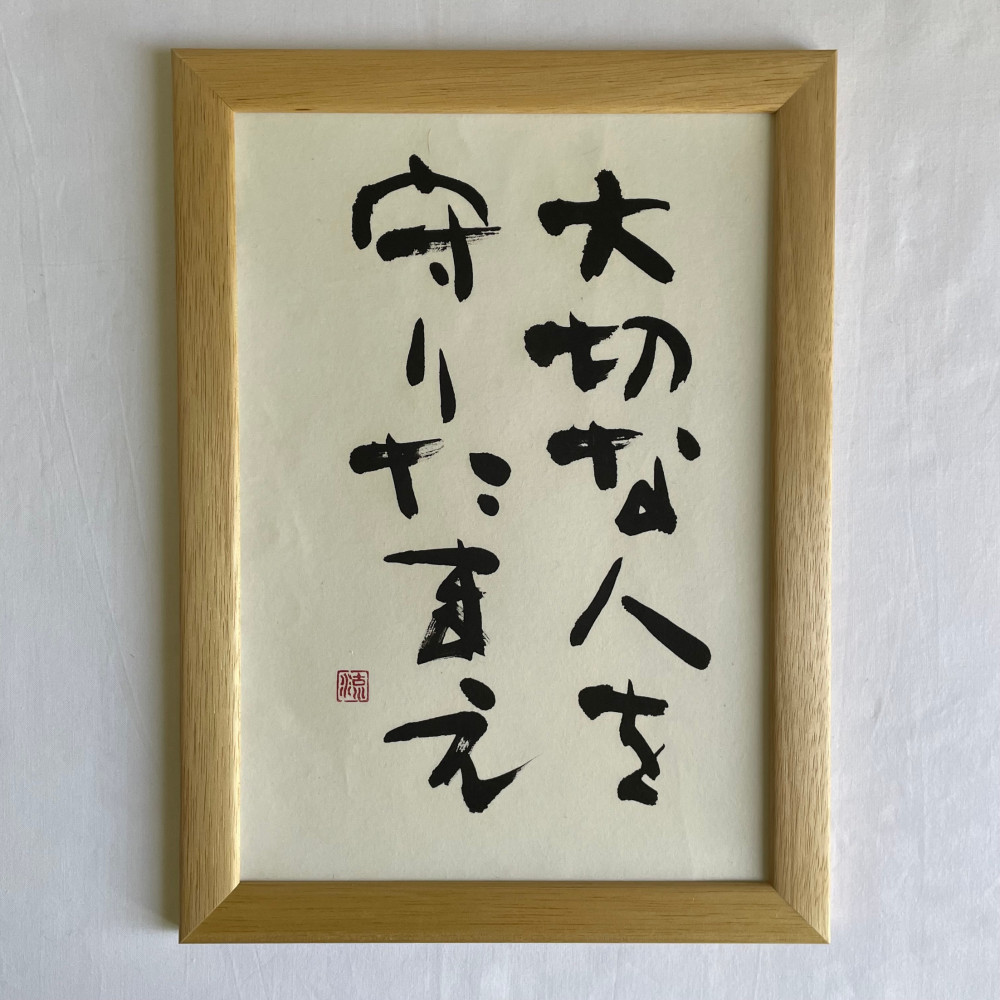 大切な人を
守りたまえ
流